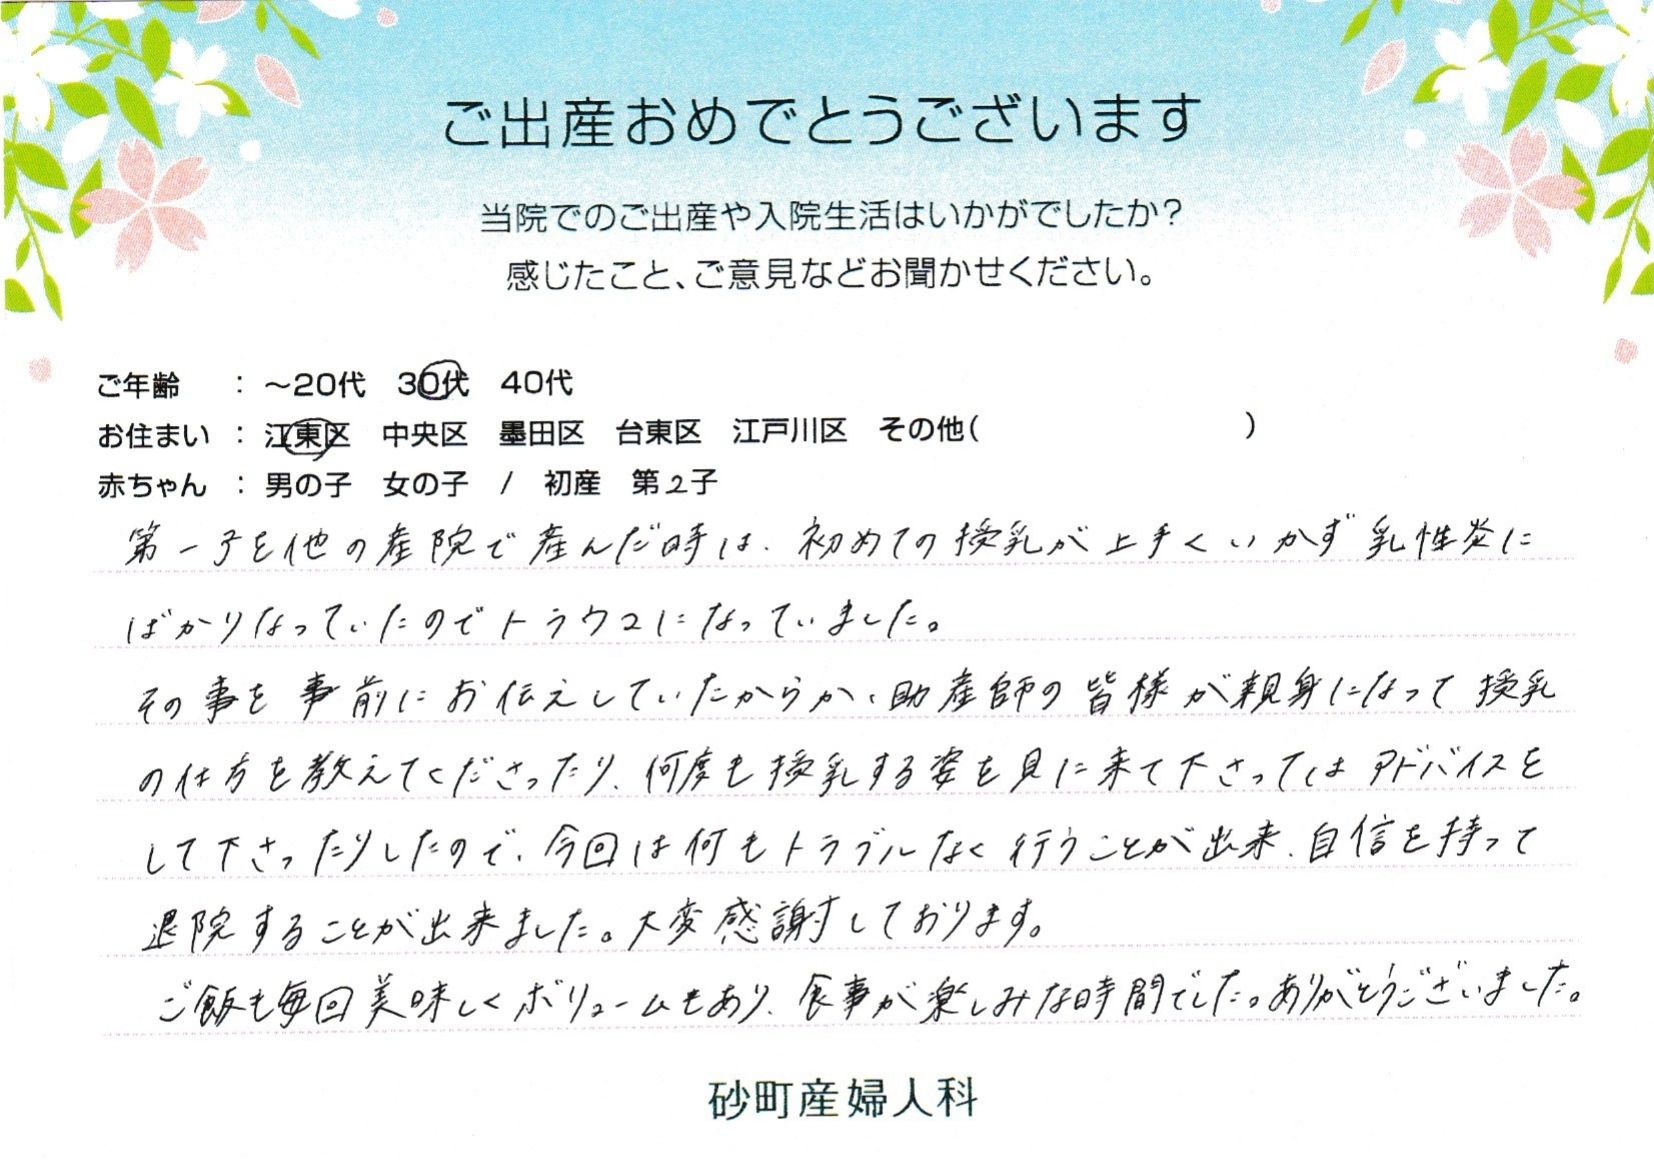 ご出産おめでとうございます
当院でのご出産や入院生活はいかがでしたか?
感じたこと、ご意見などお聞かせください。
ご年齢 : ～20代 30代 40代
お住まい : 江東区 中央区 墨田区 台東区 江戸川区 その他( )
赤ちゃん : 男の子 女の子 / 初産 第2子
第一子を他の産院で産んだ時は、初めての授乳が上手くいかず乳性炎に
ばかりなっていたのでトラウマになっていました。
その事を事前にお伝えしていたからか、助産師の皆様が親身になって授乳
の仕方を教えてくださったり、何度も授乳する姿を見に来て下さってはアドバイスを
して下さったりしたので、今回は何もトラブルなく行うことが出来、自信を持って
退院することが出来ました。大変感謝しております。
ご飯も毎回美味しくボリュームもあり、食事が楽しみな時間でした。ありがとうございました。
砂町産婦人科